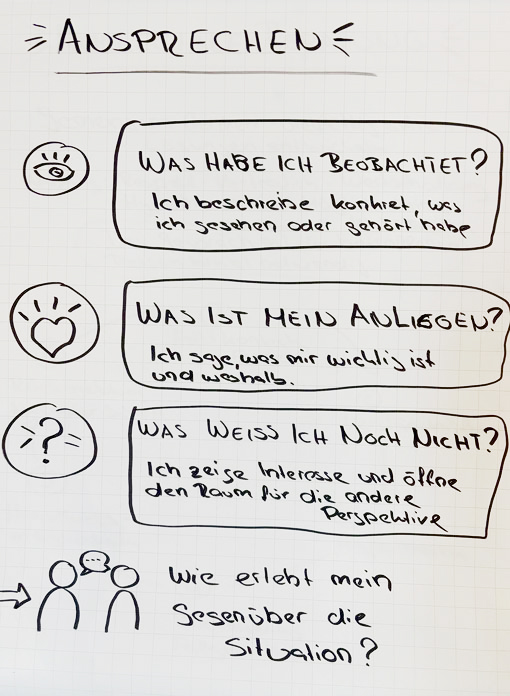 ANSPRECHEN
WAS HABE ICH BEOBACHTET?
Ich beschreibe konkret, was
ich gesehen oder gehört habe
WAS IST MEIN ANLIEGEN?
Ich sage, was mir wichtig ist
und weshalb.
WAS WEISS ICH NOCH NICHT?
Ich zeige Interesse und öffne
den Raum für die andere
Perspektive
Wie erlebt mein
Gegenüber die
Situation?